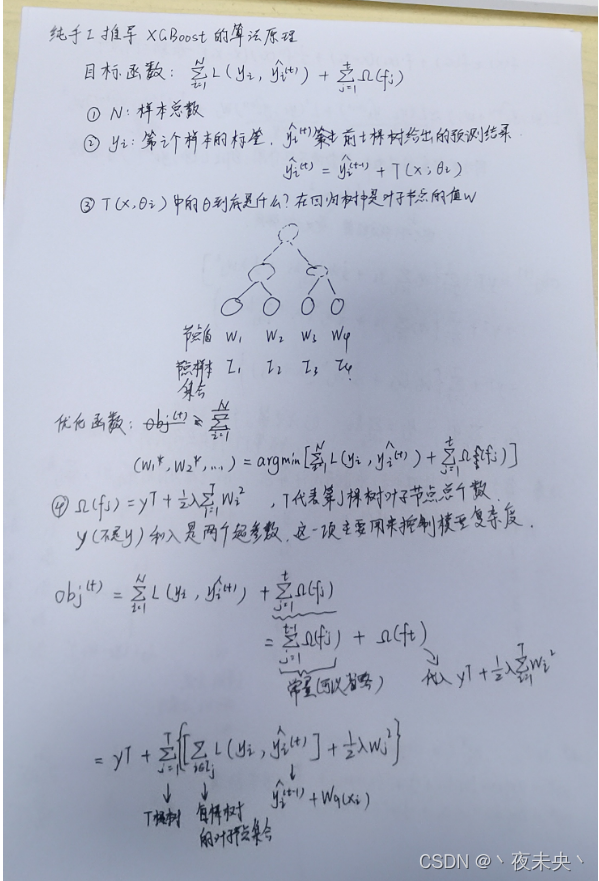 纯手工推导 XGBoost 的算法原理
目标函数: \sum_{i=1}^{N} L(y_i, \hat{y_i}^{(t)}) + \sum_{j=1}^{t} Ω(f_j)
① N: 样本总数
② y_i: 第i个样本的标签. \hat{y_i}^{(t)} 前t棵树给出的预测结果.
\hat{y_i}^{(t)} = \hat{y_i}^{(t-1)} + T(x; θ_i)
③ T(x, θ_i) 中的θ到底是什么? 在回归树中是叶子节点的值W
节点值 W_1 W_2 W_3 W_4
节点样本集合 I_1 I_2 I_3 I_4
优化函数: obj^{(t)} = \sum_{i=1}^{N}
(W_1^*, W_2^*, ...) = argmin[\sum_{i=1}^{N} L(y_i, \hat{y_i}^{(t)}) + \sum_{j=1}^{t} Ω(f_j)]
④ Ω(f_j) = γT + \frac{1}{2}λ\sum_{i=1}^{T} W_i^2 , T代表第j棵树叶子节点总个数.
γ(不是y) 和 λ 是两个超参数, 这一项主要用来控制模型复杂度.
obj^{(t)} = \sum_{i=1}^{N} L(y_i, \hat{y_i}^{(t)}) + \sum_{j=1}^{t} Ω(f_j)
= \sum_{j=1}^{t-1} Ω(f_j) + Ω(f_t)
常量(可以省略) 代入 γT + \frac{1}{2}λ\sum_{i=1}^{T} W_i^2
= γT + \sum_{j=1}^{T} {[\sum_{i∈I_j} L(y_i, \hat{y_i}^{(t)})] + \frac{1}{2}λW_j^2}
T棵树 每棵树的叶子节点集合 \hat{y_i}^{(t-1)} + W_{q(x_i)}
CSDN @丶夜未央丶